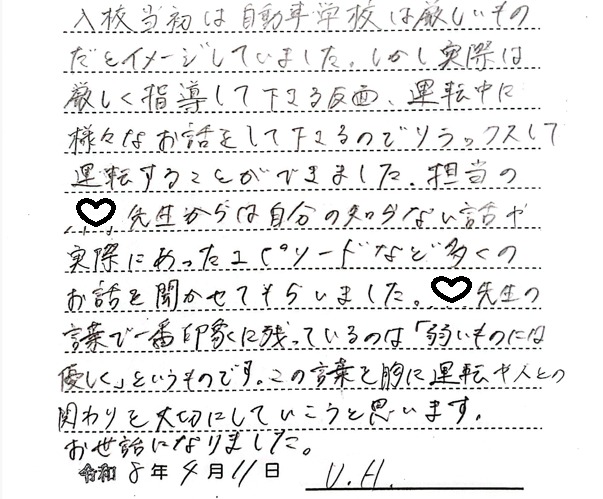 入校当初は自動車学校は厳しいもの
だとイメージしていました。しかし実際は
厳しく指導して下さる反面、運転中に
様々なお話をして下さるのでリラックスして
運転することができました。担当の
♡先生からは自分の知らない話や
実際にあったエピソードなど多くの
お話を聞かせてもらいました。♡先生の
言葉で一番印象に残っているのは「弱いものには
優しく」というものです。この言葉を胸に運転や人との
関わりを大切にしていこうと思います。
お世話になりました。
令和 8年4月11日 U.H.